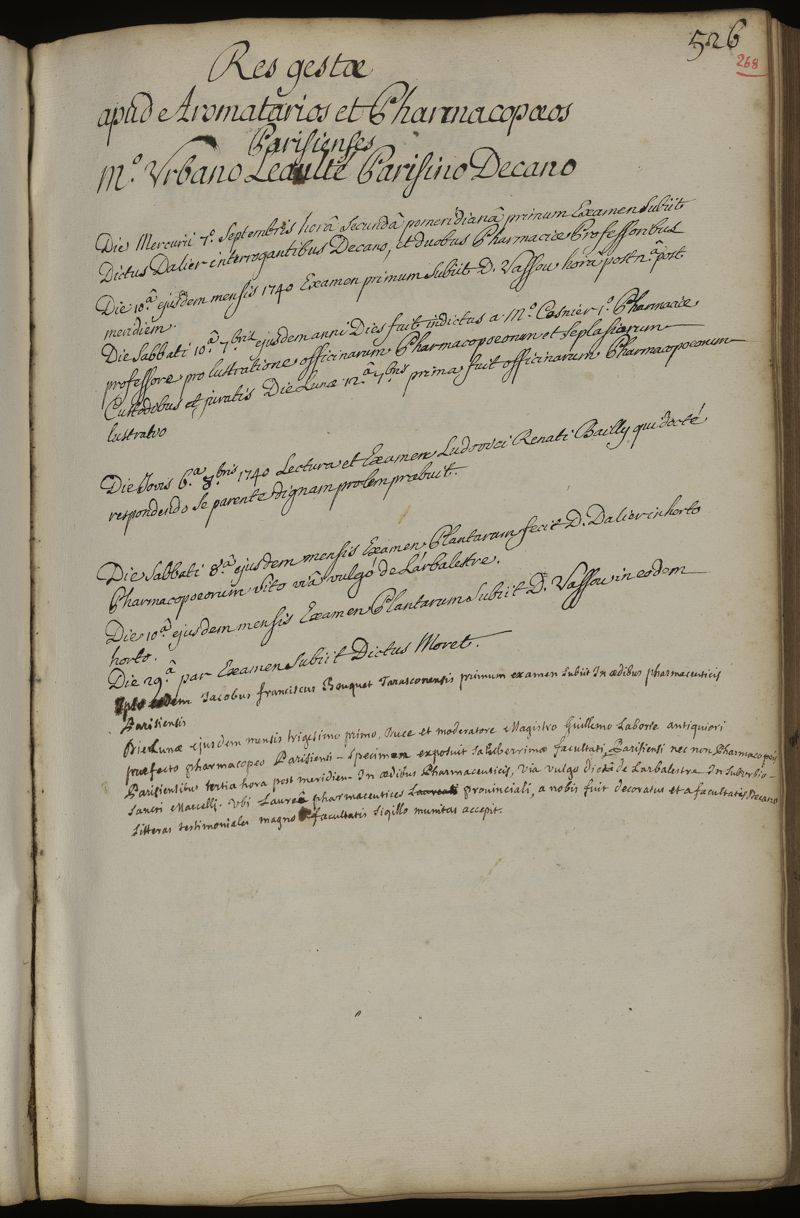 526
268
Res gestæ
apud Aromatarios et Pharmacopœos
Parisienses
M.º Vrbano Leaulté Parisino Decano
Die Mercurii 7.º Septembris horâ secundâ pomeridianâ primum Examen subiit
Dictus Dalier interrogantibus Decano, et duobus Pharmaciæ Professoribus
Die 10.ª ejusdem mensis 1740 Examen primum subiit D. Vassou horâ post n.ª post
meridiem.
Die Sabbati 10.ª 7.bris ejusdem anni Dies fuit indictus a M.º Cosnier 1.º Pharmaciæ
professore pro lustratione officinarum Pharmacopœorum et seplasiarum
Custodibus et juratis Die Lunæ 12.ª 7.bris prima fuit officinarum Pharmacopœorum
lustratio
Die Jovis 6.ª 8.bris 1740 Lectura et Examen Ludovici Renati Bailly qui docté
respondendo se parente dignam prolem præbuit.
Die Sabbati 8.ª ejusdem mensis Examen Plantarum fecit D. Dalier in horto
Pharmacopoeorum sito viâ vulgó de Larbalestre.
Die 10.ª ejusdem mensis Examen Plantarum Subiit D. Vassou in eodem
horto.
Die 29.ª par Examen Subiit Dictus Moret.
Ipso eodem Jacobus franciscus Bouquet Tarasconensis primum examen subiit In ædibus pharmaceuticis
Parisiensis
Die Lunæ ejusdem mensis trigesimo primo, Duce et moderatore Magistro Guillemo Laborie antiquiori
præfecto pharmacopeo Parisiensi - specimen exposuit saluberrimæ facultati Parisiensi nec non Pharmacopæis
Parisiensibus tertia hora post meridiem In ædibus Pharmaceuticis, Via vulgo dictâ de Larbalestre In suburbio
Sancti Marcelli. Vbi Laureâ pharmaceutices Laureati provinciali, a nobis fuit decoratus et a facultatis Decano
litteras testimoniales magno facultatis sigillo munitas accepit.